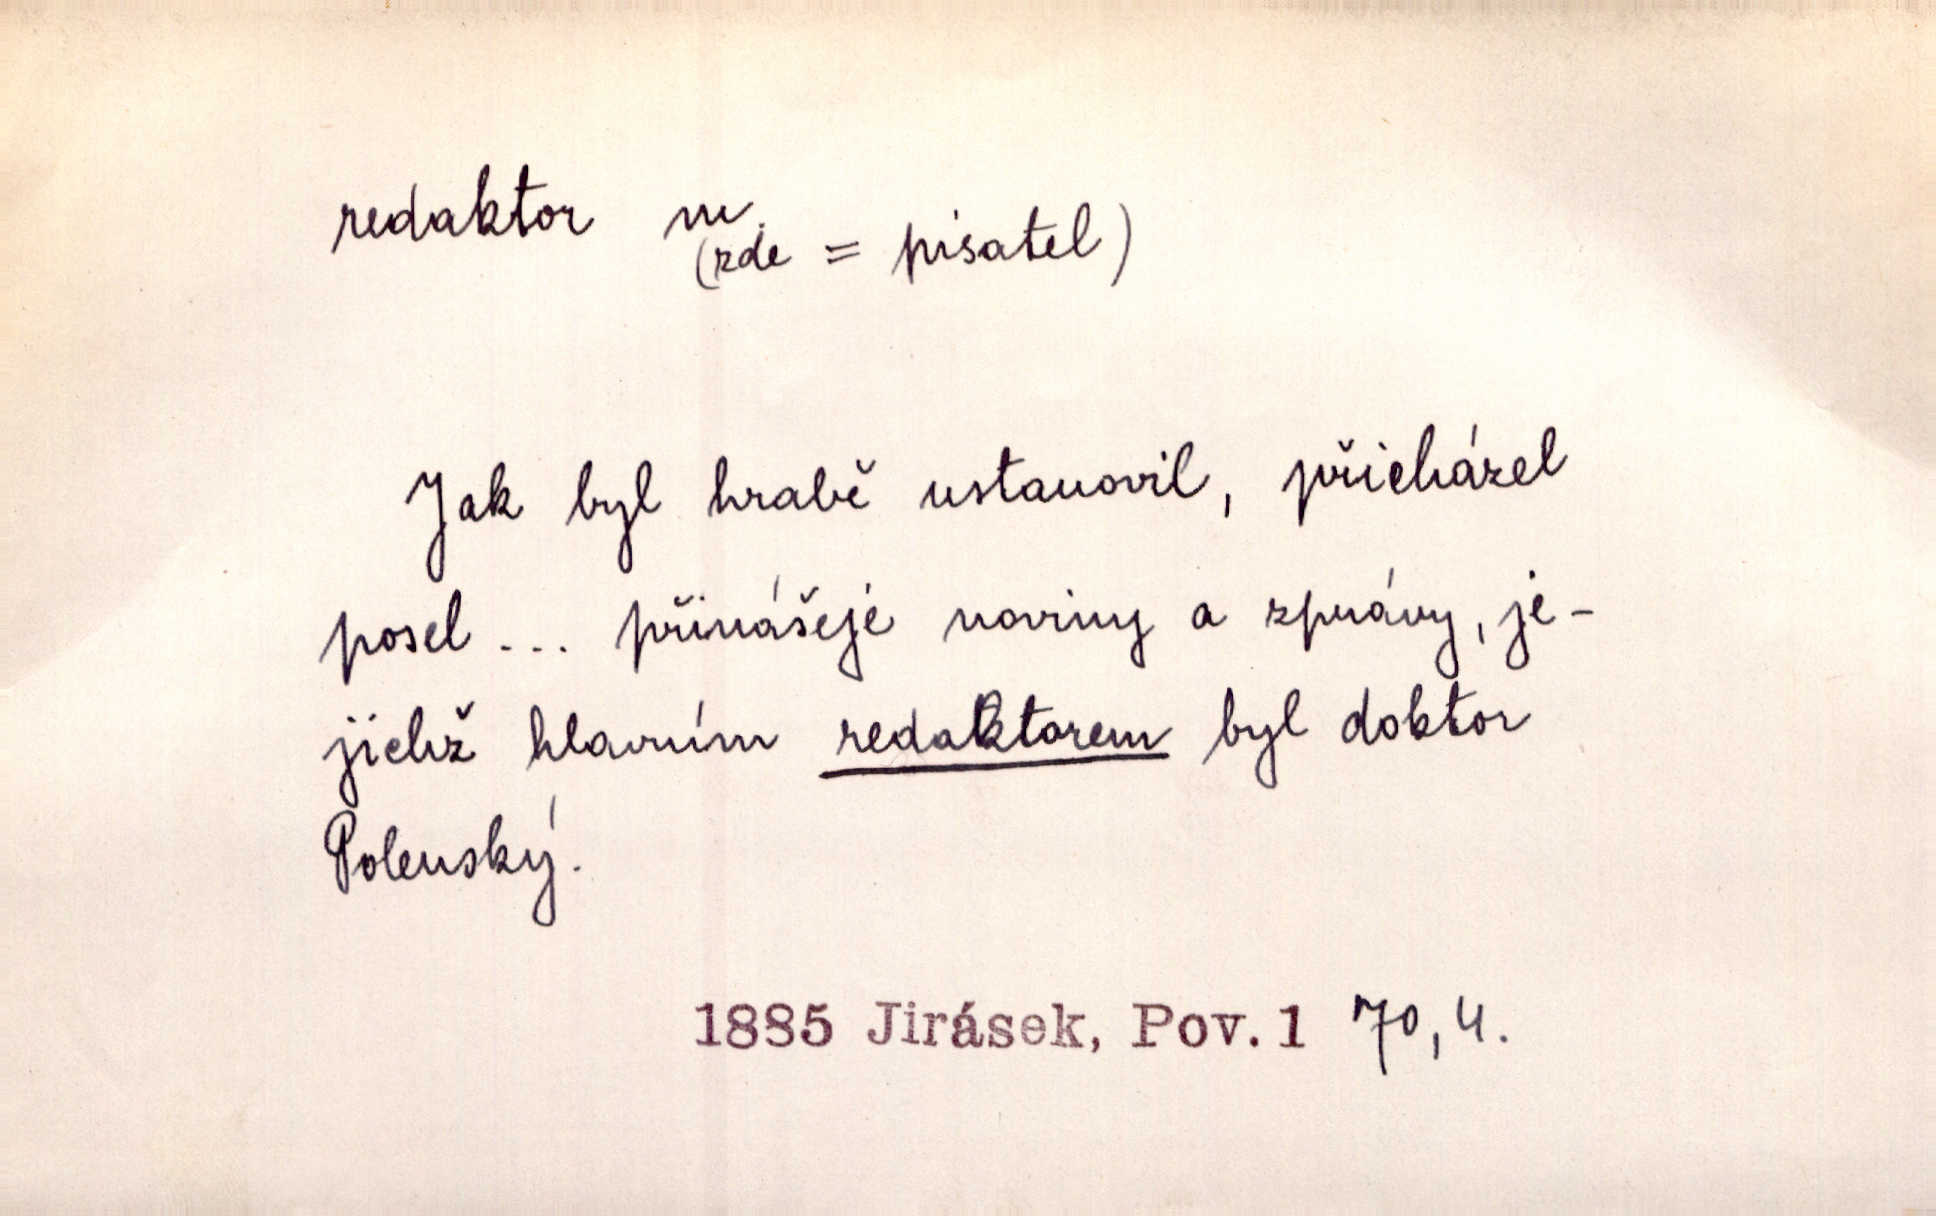 redaktor m.
(zde = pisatel)
Jak byl hrabě ustanovil, přicházel
posel ... přinášeje noviny a zprávy, je-
jichž hlavním redaktorem byl doktor
Polenský.
1885 Jirásek, Pov. 1 70, 4.